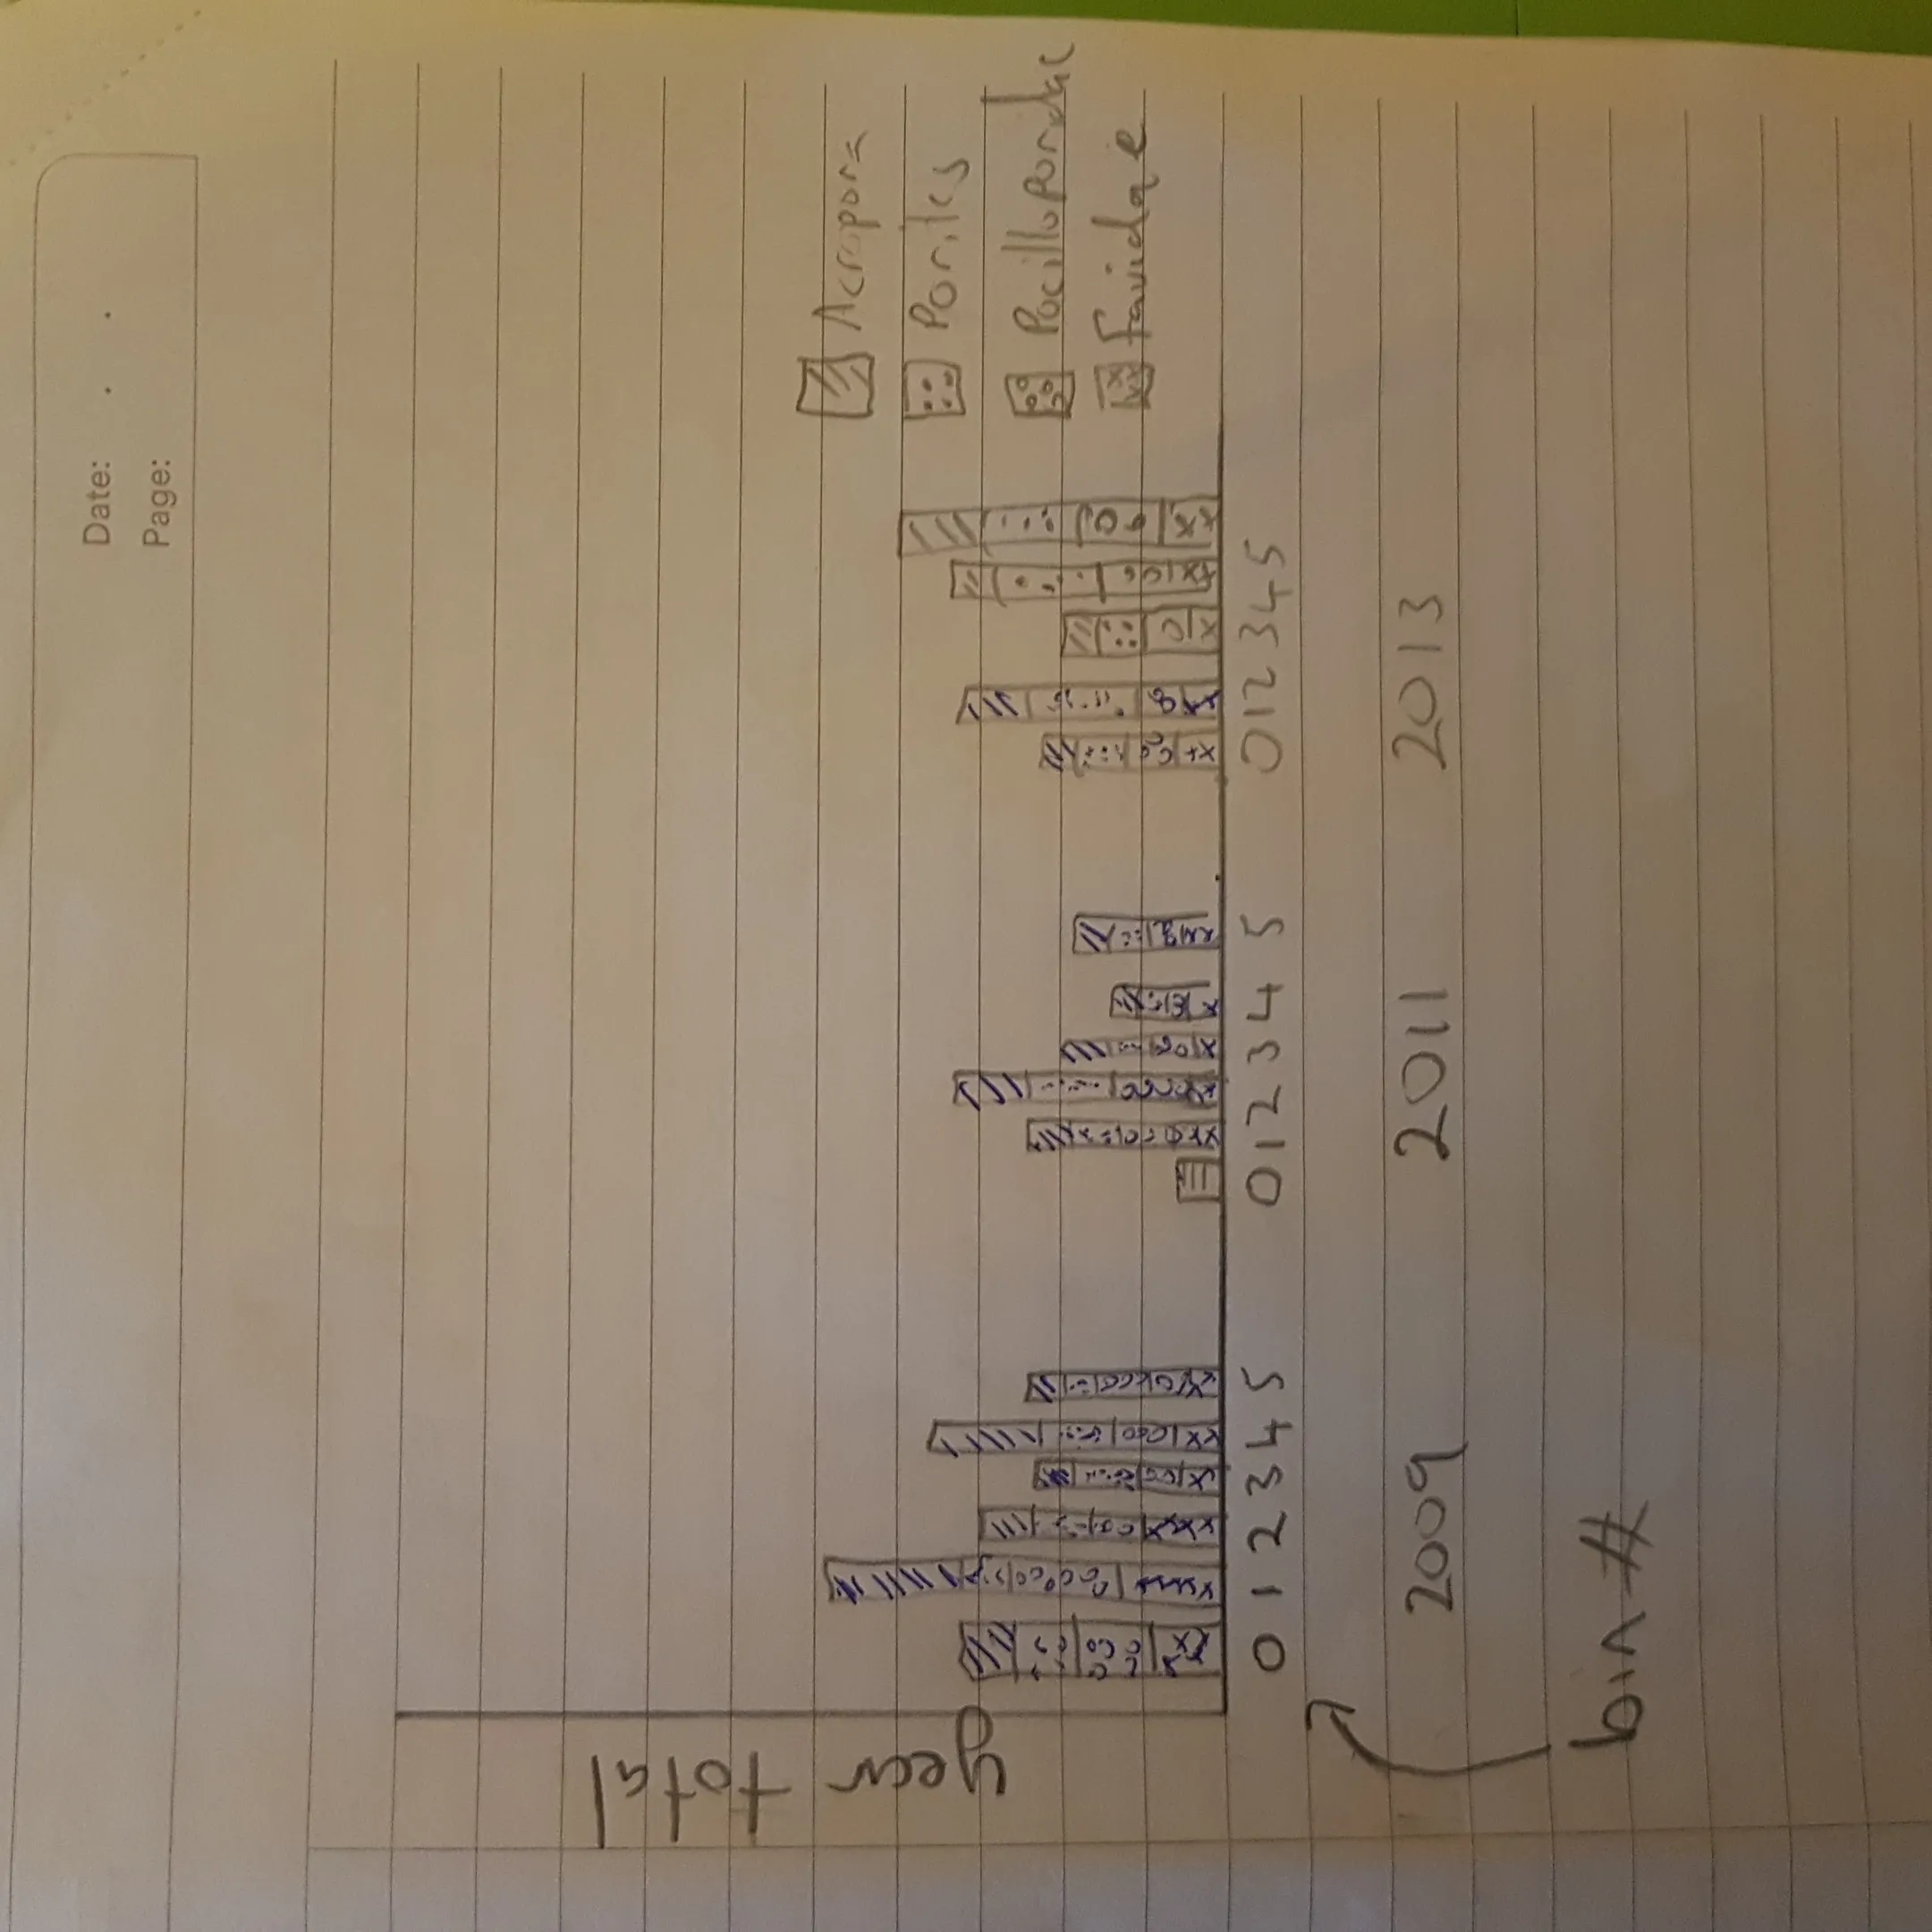 Date: . .
Page:
Acropora
Porites
Pocilloporidae
Faviidae
year total
0 1 2 3 4 5 0 1 2 3 4 5 0 1 2 3 4 5
2009 2011 2013
bin #